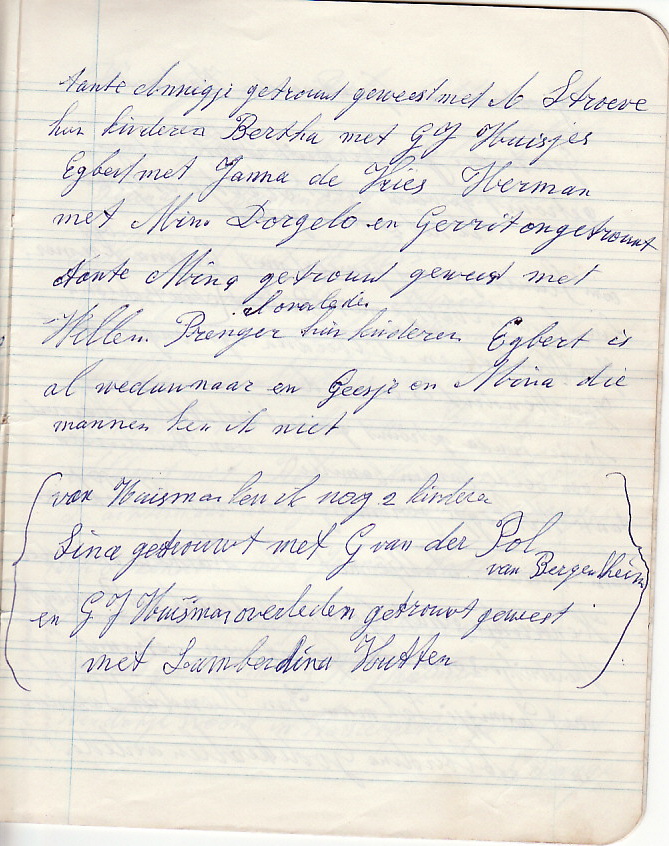 tante Annigje getrouwt geweest met A Stroeve
hun kinderen Bertha met G J Huisjes
Egbert met Janna de Vries Herman
met Mina Dorgelo en Gerrit ongetrouwt
tante Mina getrouwt geweest met
al overleden
Willem Prenger hun kinderen Egbert is
al weduwnaar en Geesje en Mina die
mannen ken ik niet
van Huisman ken ik nog 2 kindere
Sina getrouwt met G van der Pol
van Bergentheim
en G J Huisman overleden getrouwt geweest
met Lamberdina Hutten